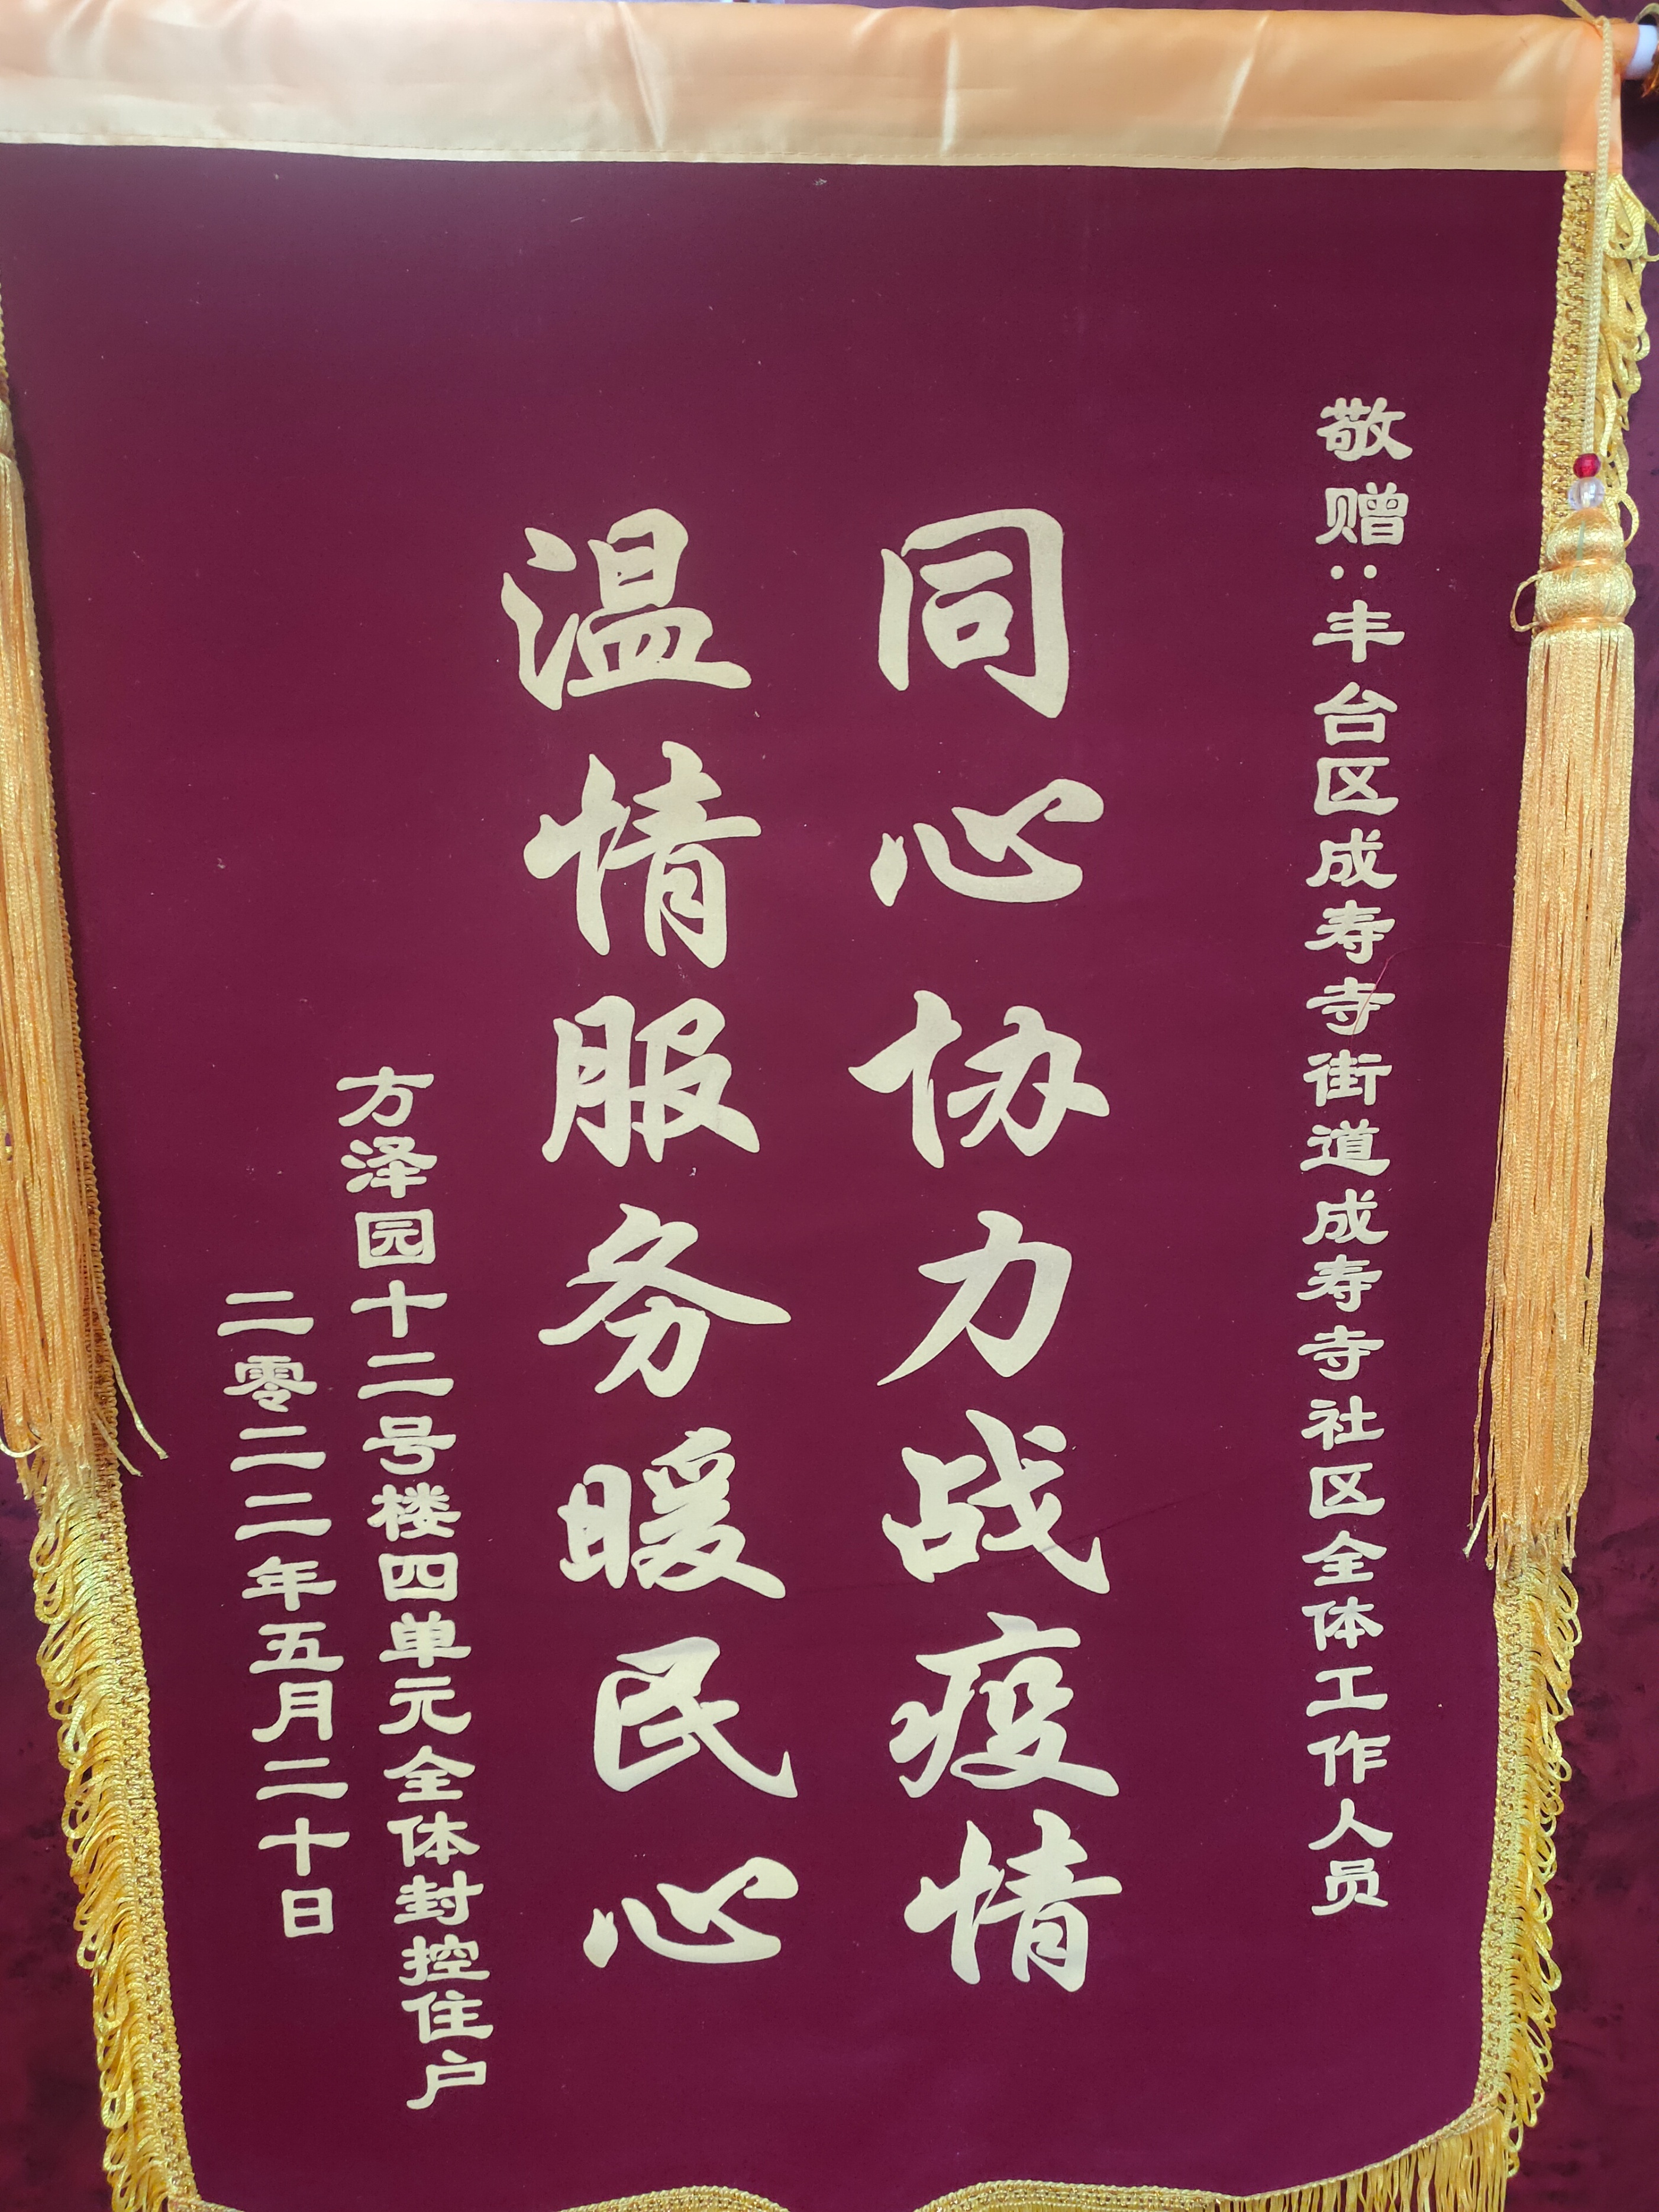 敬赠：丰台区成寿寺街道成寿寺社区全体工作人员
同心协力战疫情
温情服务暖民心
方泽园十二号楼四单元全体封控住户
二零二二年五月二十日